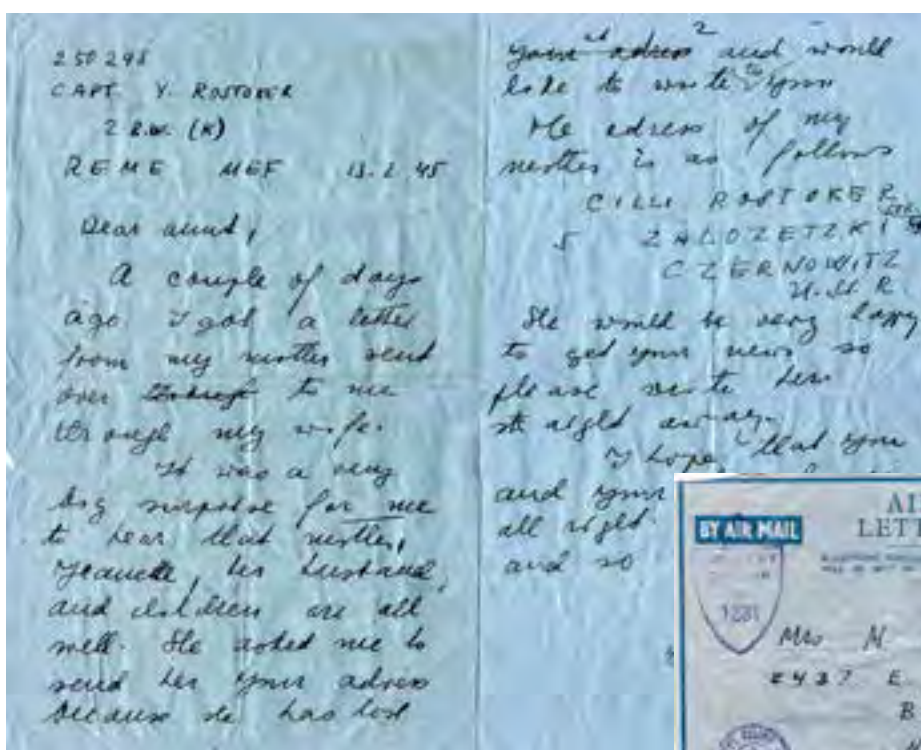 250298
CAPT Y. ROSTOKER
2 B.W. (K)
REME MEF 13.2.45
Dear aunt,
A couple of days
ago I got a letter
from my mother send
over to me
through my wife.
It was a very
big surprise for me
to hear that mother,
Jeanette, her husband,
and children are all
well. She asked me to
send her your adress
because she has lost
2
your adress and would
like to write to you
The adress of my
mother is as follows
CILLI ROSTOKER
5 ZALOZETZKI STR.
CZERNOWITZ
She would be very happy
to get your news so
please write her
straight away.
I hope that you
and your
all right.
and so
BY AIR MAIL
AI
LETT
1231
Mrs N
E.
B